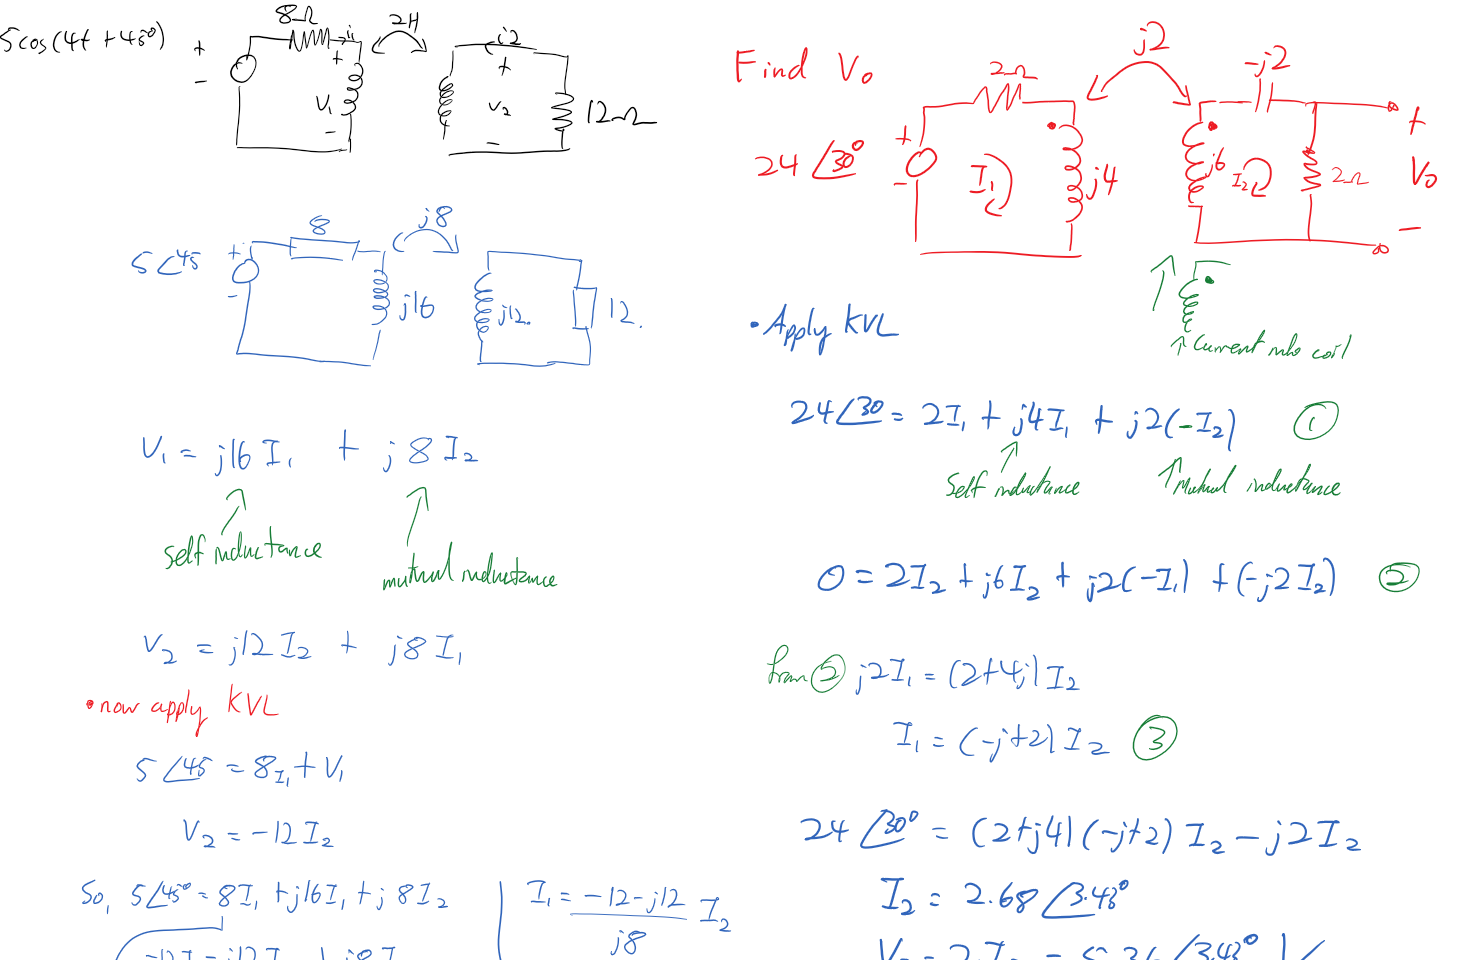 5cos(4t + 45°)
+
-
8Ω
i₁
2H
i2
+
V₁
-
+
V₂
-
12Ω
5∠45
+
-
8
j8
j16
j12.
12.
V₁ = j16 I₁ + j8 I₂
Self inductance
mutual inductance
V₂ = j12 I₂ + j8 I₁
• now apply KVL
5∠45 = 8I₁ + V₁
V₂ = -12 I₂
So, 5∠45° = 8I₁ + j16I₁ + j8I₂
I₁ = -12 - j12 / j8 I₂
Find V₀
24∠30°
+
-
2Ω
j2
I₁
j4
j6
-j2
I₂
2Ω
+
V₀
-
↑ Current into coil
• Apply KVL
24∠30 = 2I₁ + j4I₁ + j2(-I₂) ①
Self inductance
Mutual inductance
0 = 2I₂ + j6I₂ + j2(-I₁) + (-j2I₂) ②
from ② j2I₁ = (2+4j)I₂
I₁ = (-j+2)I₂ ③
24∠30° = (2+j4)(-j+2)I₂ - j2I₂
I₂ = 2.68∠3.43°